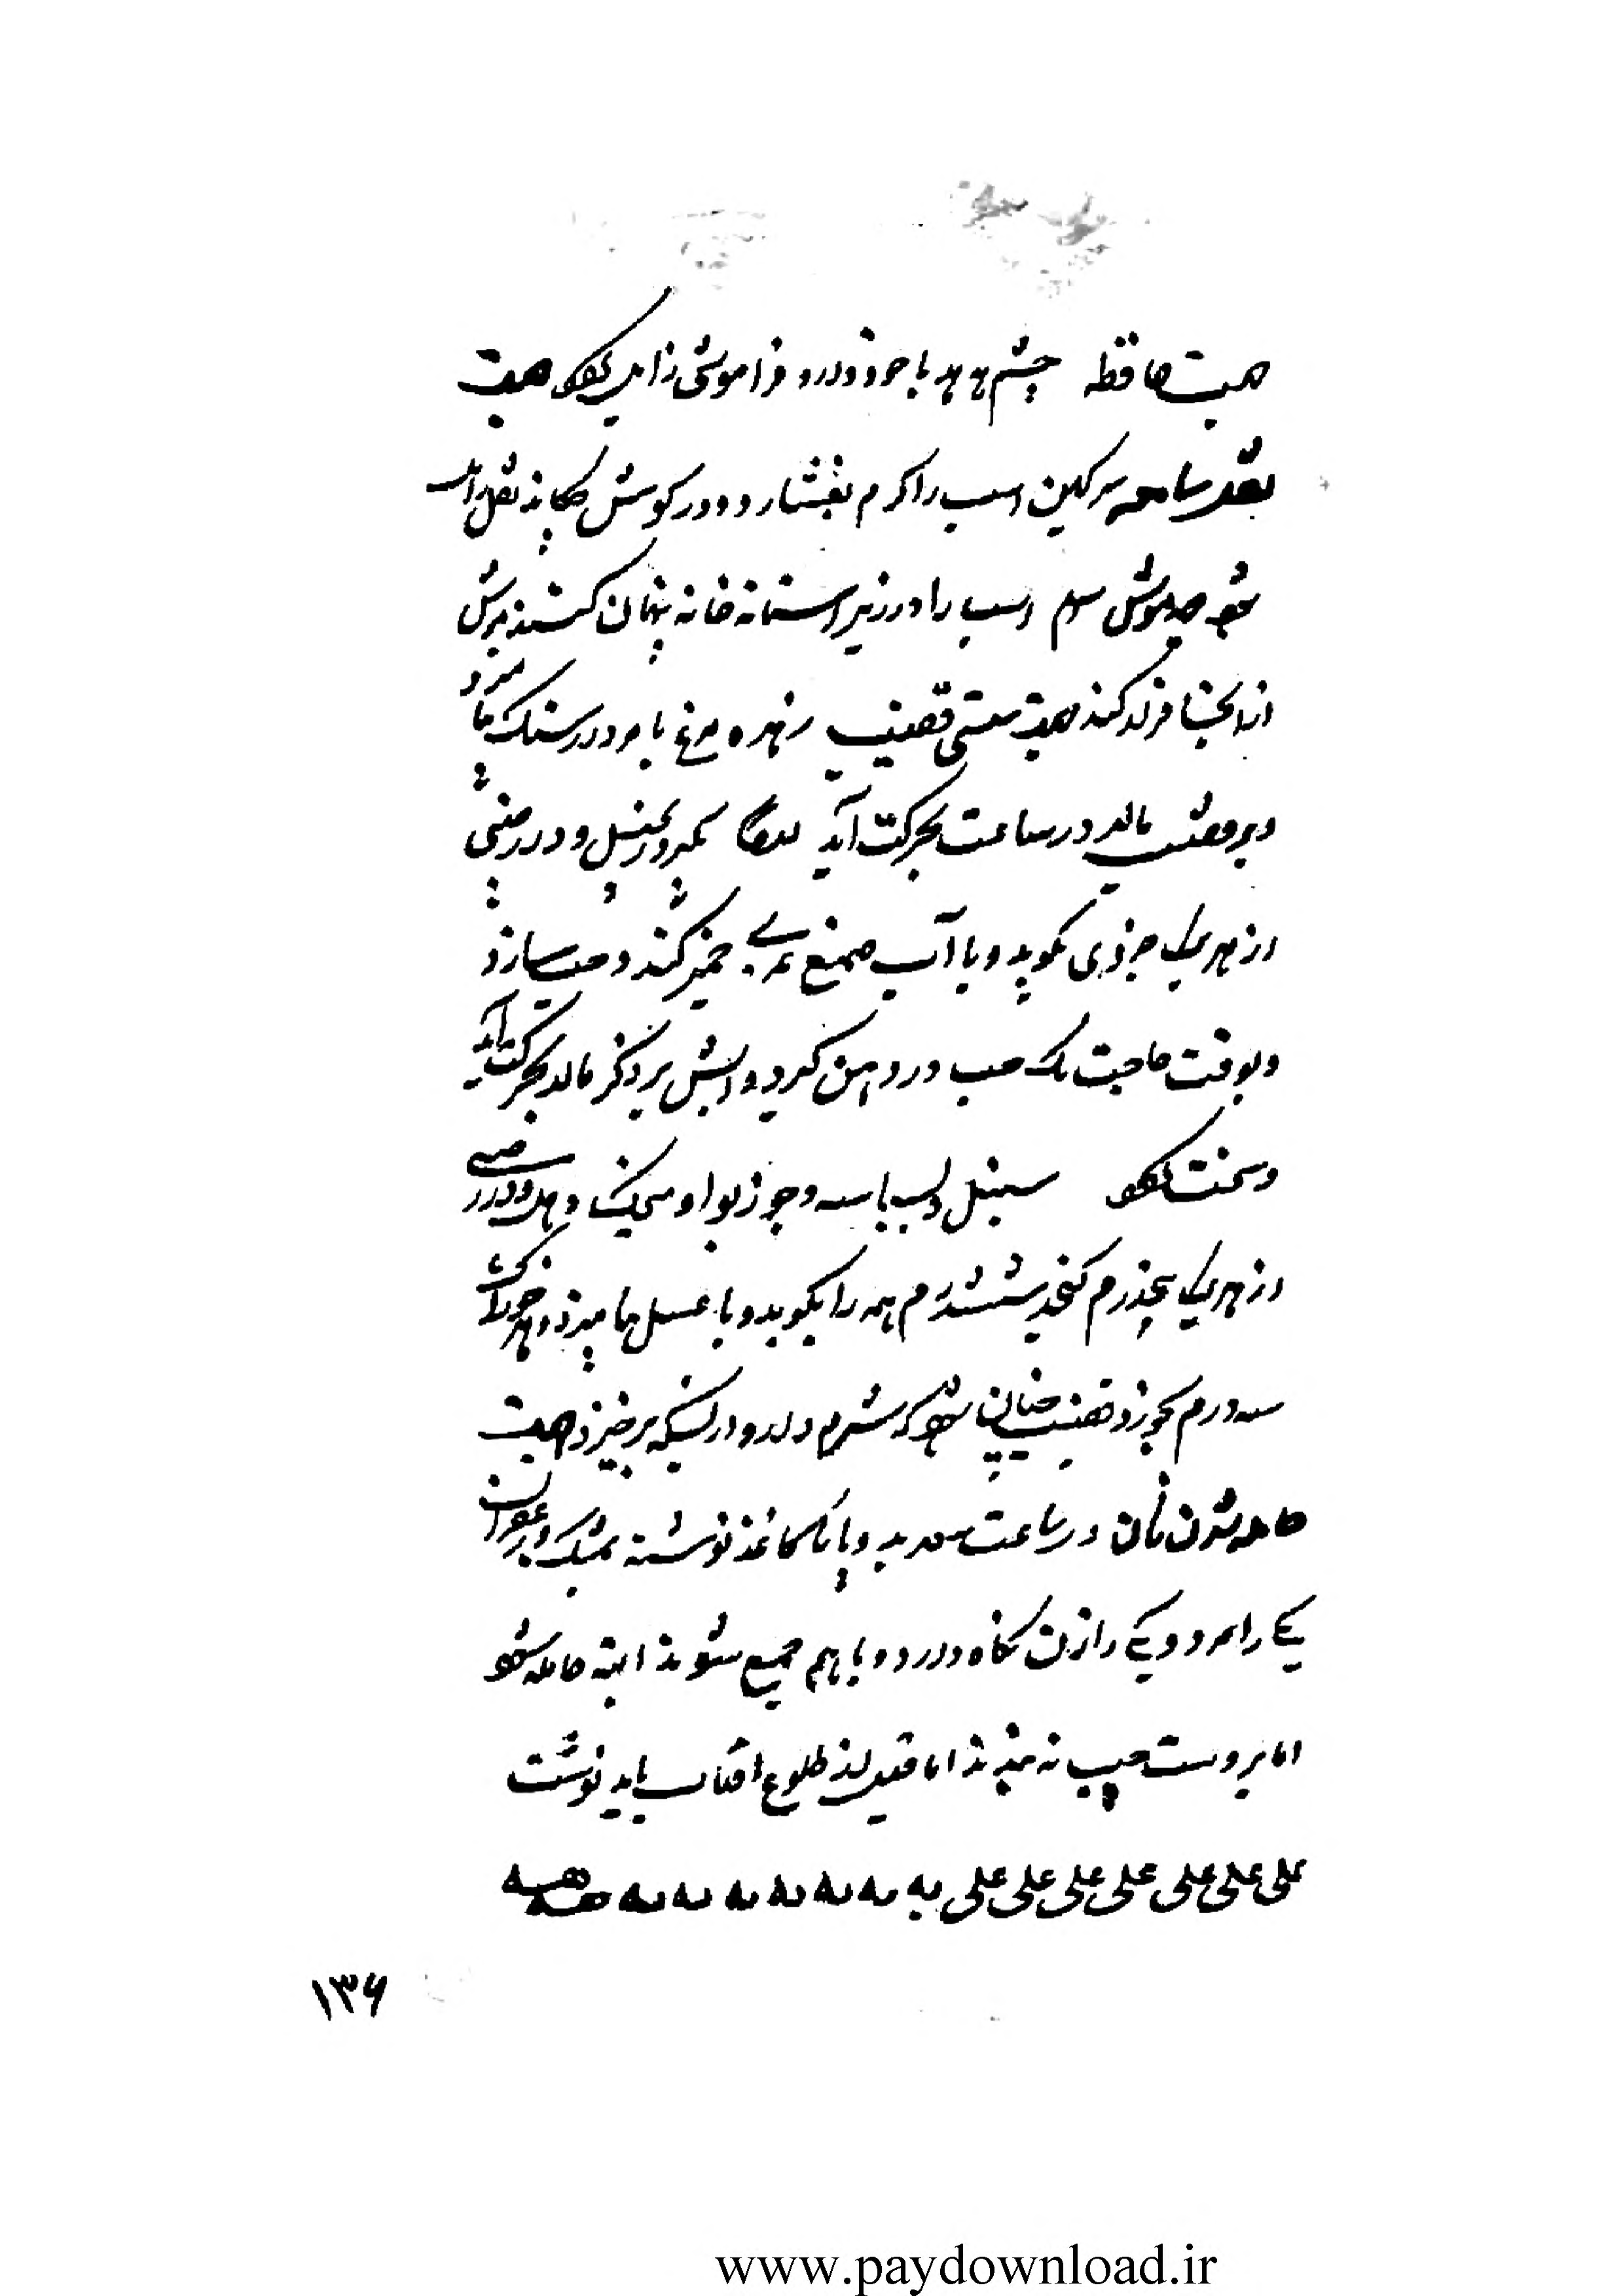 جهت حافظه چشم هدهد با خود دارد فراموشی زایل شود جهت
ثقل سامعه سرگین اسب را گرم بفشارد و در گوش چکاند ثقل زایل
شود جهة موش سم اسب را در زیر آستانه خانه پنهان کنند موش
از آنجا فرار کند جهت سستی قضیب زهره مرغ با مرد سنگ
و بر قضیب مالد در ساعت بحرکت آید بگیرد زنجبیل و دارچینی
از هر یک جزوی بکوبد و با آب صمغ عربی خمیر کند و حب سازد
و بوقت حاجت یک حب در دهن گیرد و آبش بر ذکر مالد بحرکت آید
و سخت شود سنبل بسباسه و جوز بوا و میخک و دارچینی
از هر یک پنجدرم کنجد ششدرم همه را بکوبد و با عسل بیامیزد و هر
سه درم بخورد قضیب چنان شود که شرم دارد از اینکه برخیزد جهت
حامله شدن زنان در ساعت سعد بر دو کاغذ نوشته بمشک و زعفران
یکی را مرد و یکی را زن نگاه دارد و با هم جمع شوند البته حامله شود
اما بر دست چپ به بندند اما قبل از طلوع آفتاب باید نوشت
علی علی علی علی علی علی علی به به به به به به به به
۱۳۶
www.paydownload.ir